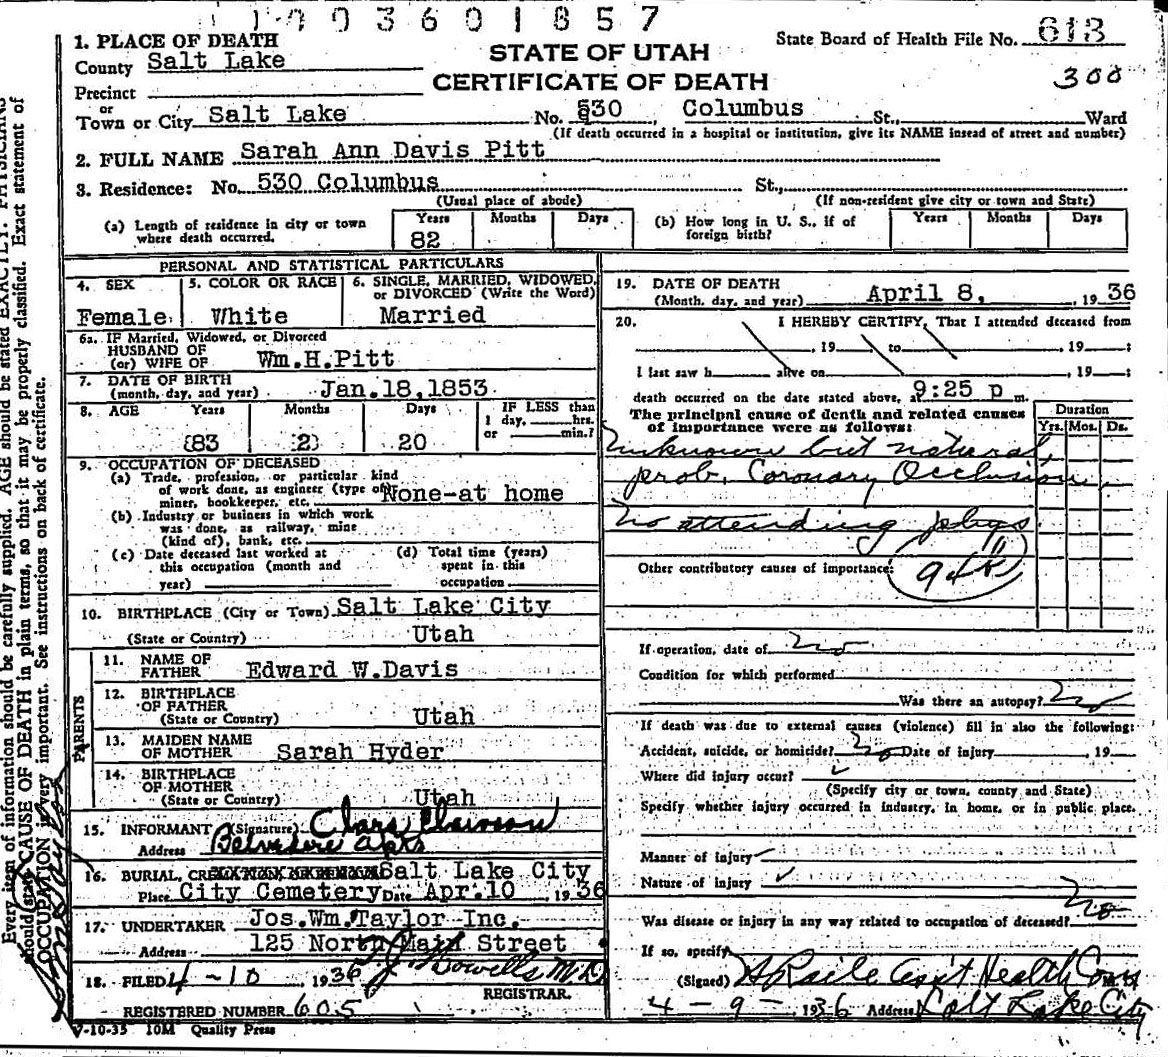 1003601857
1. PLACE OF DEATH
STATE OF UTAH
CERTIFICATE OF DEATH
State Board of Health File No. 613
300
County Salt Lake
Precinct
or
Town or City Salt Lake No. 530 Columbus St., Ward
(If death occurred in a hospital or institution, give its NAME insead of street and number)
2. FULL NAME Sarah Ann Davis Pitt
3. Residence: No. 530 Columbus St.,
(Usual place of abode) (If non-resident give city or town and State)
(a) Length of residence in city or town where death occurred. Years 82 Months Days
(b) How long in U. S., if of foreign birth? Years Months Days
PERSONAL AND STATISTICAL PARTICULARS
4. SEX Female
5. COLOR OR RACE White
6. SINGLE, MARRIED, WIDOWED, or DIVORCED (Write the Word) Married
6a. IF Married, Widowed, or Divorced
HUSBAND OF
(or) WIFE OF Wm.H.Pitt
7. DATE OF BIRTH
(month, day, and year) Jan.18,1853
8. AGE Years 83 Months 2 Days 20
IF LESS than
1 day, hrs.
or min.?
9. OCCUPATION OF DECEASED
(a) Trade, profession, or particular kind
of work done, as engineer (type of None-at home
miner, bookkeeper, etc.
(b) Industry or business in which work
was done, as railway, mine
(kind of), bank, etc.
(c) Date deceased last worked at
this occupation (month and
year)
(d) Total time (years)
spent in this
occupation
10. BIRTHPLACE (City or Town) Salt Lake City
(State or Country) Utah
PARENTS
11. NAME OF
FATHER Edward W.Davis
12. BIRTHPLACE
OF FATHER
(State or Country) Utah
13. MAIDEN NAME
OF MOTHER Sarah Hyder
14. BIRTHPLACE
OF MOTHER
(State or Country) Utah
15. INFORMANT (Signature) Clara
Address Belvedere Apts
16. BURIAL, Salt Lake City
Place City Cemetery Date Apr.10 1936
17. UNDERTAKER Jos.Wm.Taylor Inc.
Address 125 North Main Street
18. FILED 4-10, 1936 M.D.
REGISTRAR.
REGISTERED NUMBER 605
7-10-35 10M Quality Press
19. DATE OF DEATH
(Month, day, and year) April 8, 1936
20. I HEREBY CERTIFY, That I attended deceased from
, 19 to , 19 :
I last saw h alive on , 19 :
death occurred on the date stated above, 9:25 p m.
The principal cause of death and related causes
of importance were as follows:
Duration
Yrs. Mos. Ds.
Unknown but natural,
prob. Coronary Occlusion
No attending phys.
Other contributory causes of importance:
If operation, date of No
Condition for which performed
Was there an autopsy? No
If death was due to external causes (violence) fill in also the following:
Accident, suicide, or homicide? No Date of injury 19
Where did injury occur?
(Specify city or town, county and State)
Specify whether injury occurred in industry, in home, or in public place.
Manner of injury
Nature of injury
Was disease or injury in any way related to occupation of deceased? No
If so, specify
(Signed) Asst Health Comr
4-9-1936 Address Salt Lake City
Every item of information should be carefully supplied. AGE should be stated EXACTLY. PHYSICIANS
should state CAUSE OF DEATH in plain terms, so that it may be properly classified. Exact statement of
OCCUPATION is very important. See instructions on back of certificate.